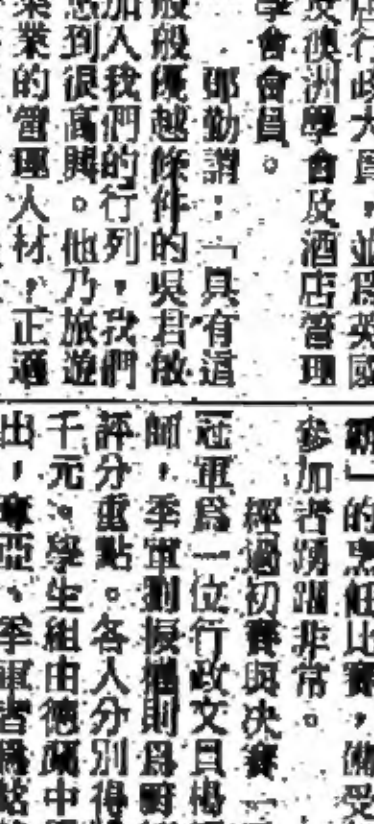 任行政大員，並爲英國
及澳洲學會及酒店管理
學會會員。
鄧勤謂：「具有這
般般優越條件的吳君敏
加入我們的行列，我們
感到很高興。他乃旅遊
業的管理人材，正適
的烹飪比賽，備受
參加者踴躍非常。
經過初賽與决賽
冠軍爲一位行政文員楊
師，季軍則爲厨
評分重點。各人分別得
千元。學生組由德蘭中
出，奪亞、季軍者